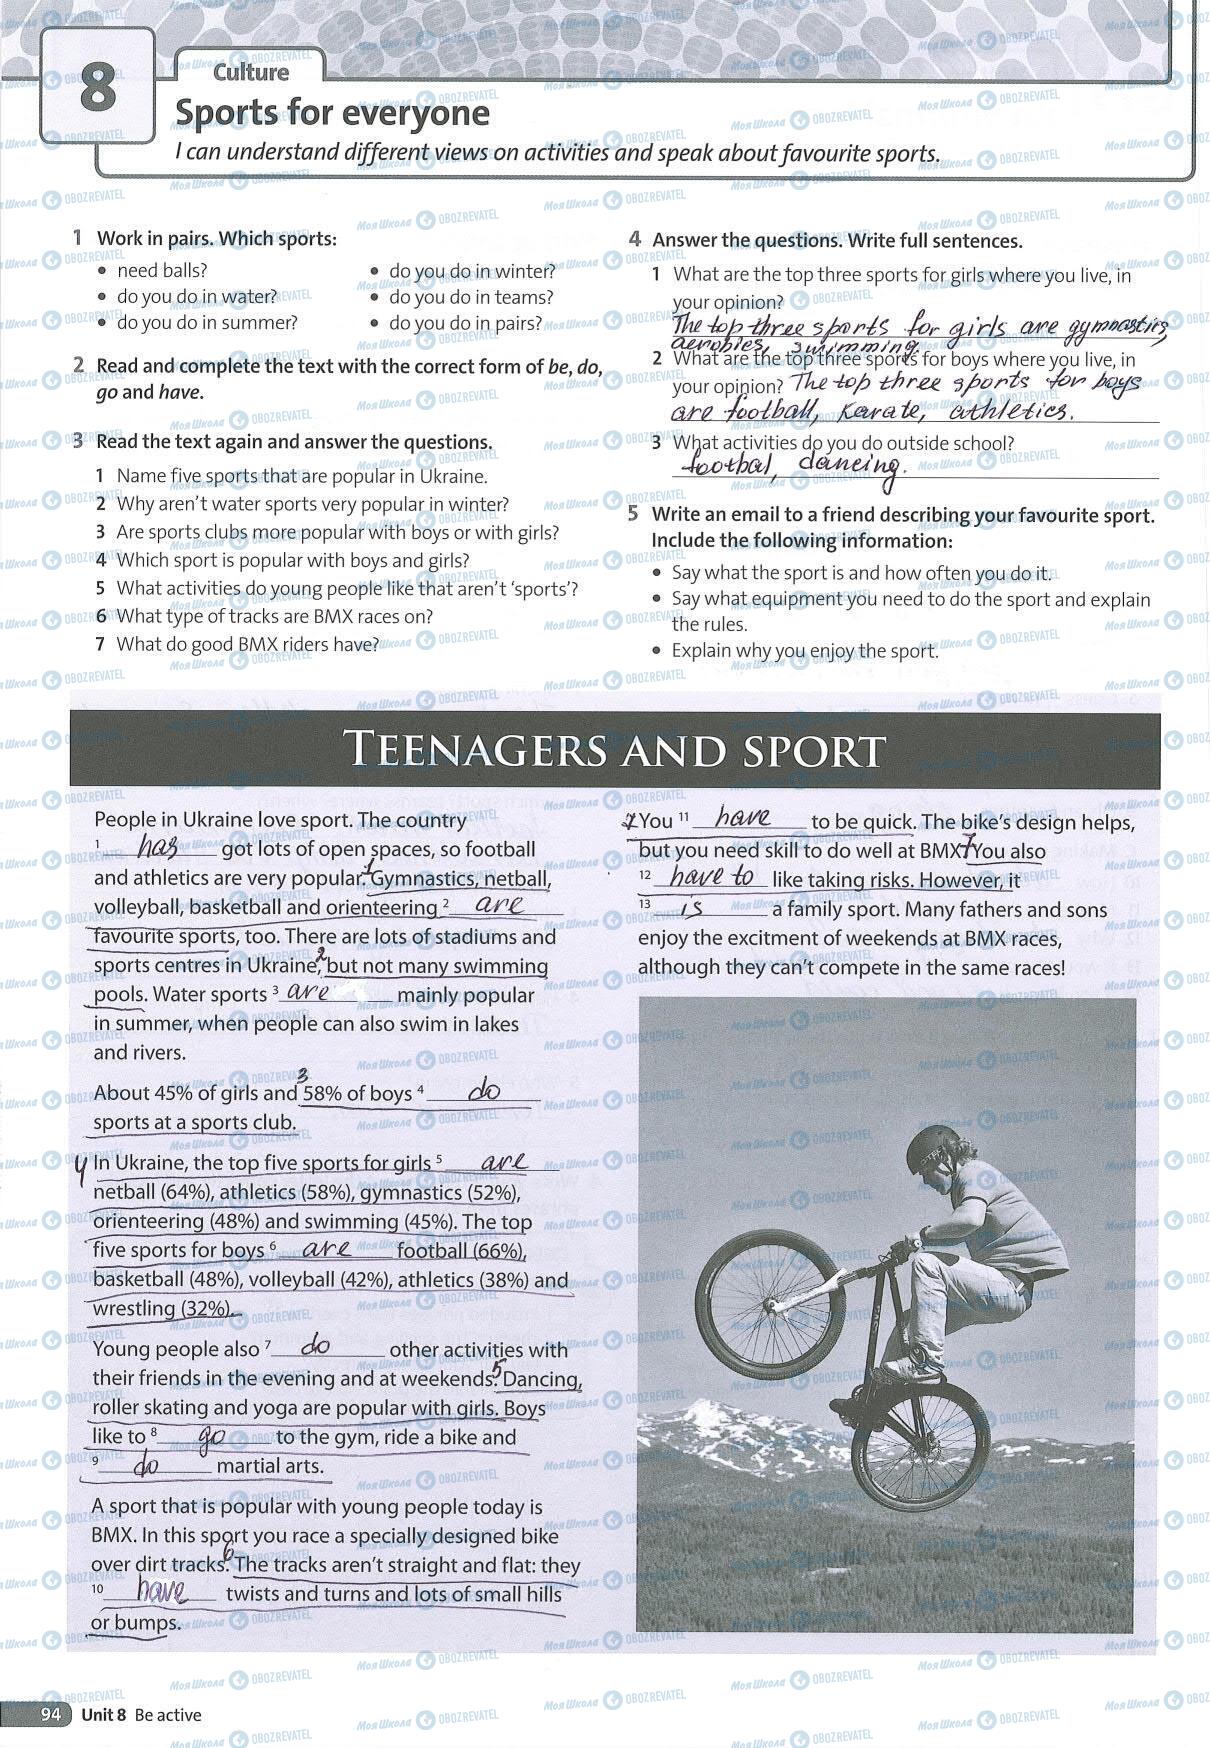 8
Culture
Sports for everyone
I can understand different views on activities and speak about favourite sports.
1 Work in pairs. Which sports:
• need balls?
• do you do in water?
• do you do in summer?
• do you do in winter?
• do you do in teams?
• do you do in pairs?
2 Read and complete the text with the correct form of be, do,
go and have.
3 Read the text again and answer the questions.
1 Name five sports that are popular in Ukraine.
2 Why aren't water sports very popular in winter?
3 Are sports clubs more popular with boys or with girls?
4 Which sport is popular with boys and girls?
5 What activities do young people like that aren't 'sports'?
6 What type of tracks are BMX races on?
7 What do good BMX riders have?
4 Answer the questions. Write full sentences.
1 What are the top three sports for girls where you live, in
your opinion?
The top three sports for girls are gymnastics,
aerobies, swimming.
2 What are the top three sports for boys where you live, in
your opinion? The top three sports for boys
are football, karate, athletics.
3 What activities do you do outside school?
footbal, dancing.
5 Write an email to a friend describing your favourite sport.
Include the following information:
• Say what the sport is and how often you do it.
• Say what equipment you need to do the sport and explain
the rules.
• Explain why you enjoy the sport.
TEENAGERS AND SPORT
People in Ukraine love sport. The country
1 has got lots of open spaces, so football
and athletics are very popular. 1 Gymnastics, netball,
volleyball, basketball and orienteering 2 are
favourite sports, too. There are lots of stadiums and
sports centres in Ukraine, 2 but not many swimming
pools. Water sports 3 are mainly popular
in summer, when people can also swim in lakes
and rivers.
About 45% of girls and 3 58% of boys 4 do
sports at a sports club.
4 In Ukraine, the top five sports for girls 5 are
netball (64%), athletics (58%), gymnastics (52%),
orienteering (48%) and swimming (45%). The top
five sports for boys 6 are football (66%),
basketball (48%), volleyball (42%), athletics (38%) and
wrestling (32%).
Young people also 7 do other activities with
their friends in the evening and at weekends. 5 Dancing,
roller skating and yoga are popular with girls. Boys
like to 8 go to the gym, ride a bike and
9 do martial arts.
A sport that is popular with young people today is
BMX. In this sport you race a specially designed bike
over dirt tracks. 6 The tracks aren't straight and flat: they
10 have twists and turns and lots of small hills
or bumps.
7 You 11 have to be quick. The bike's design helps,
but you need skill to do well at BMX. 7 You also
12 have to like taking risks. However, it
13 is a family sport. Many fathers and sons
enjoy the excitment of weekends at BMX races,
although they can't compete in the same races!
94 Unit 8 Be active
МояШкола OBOZREVATEL